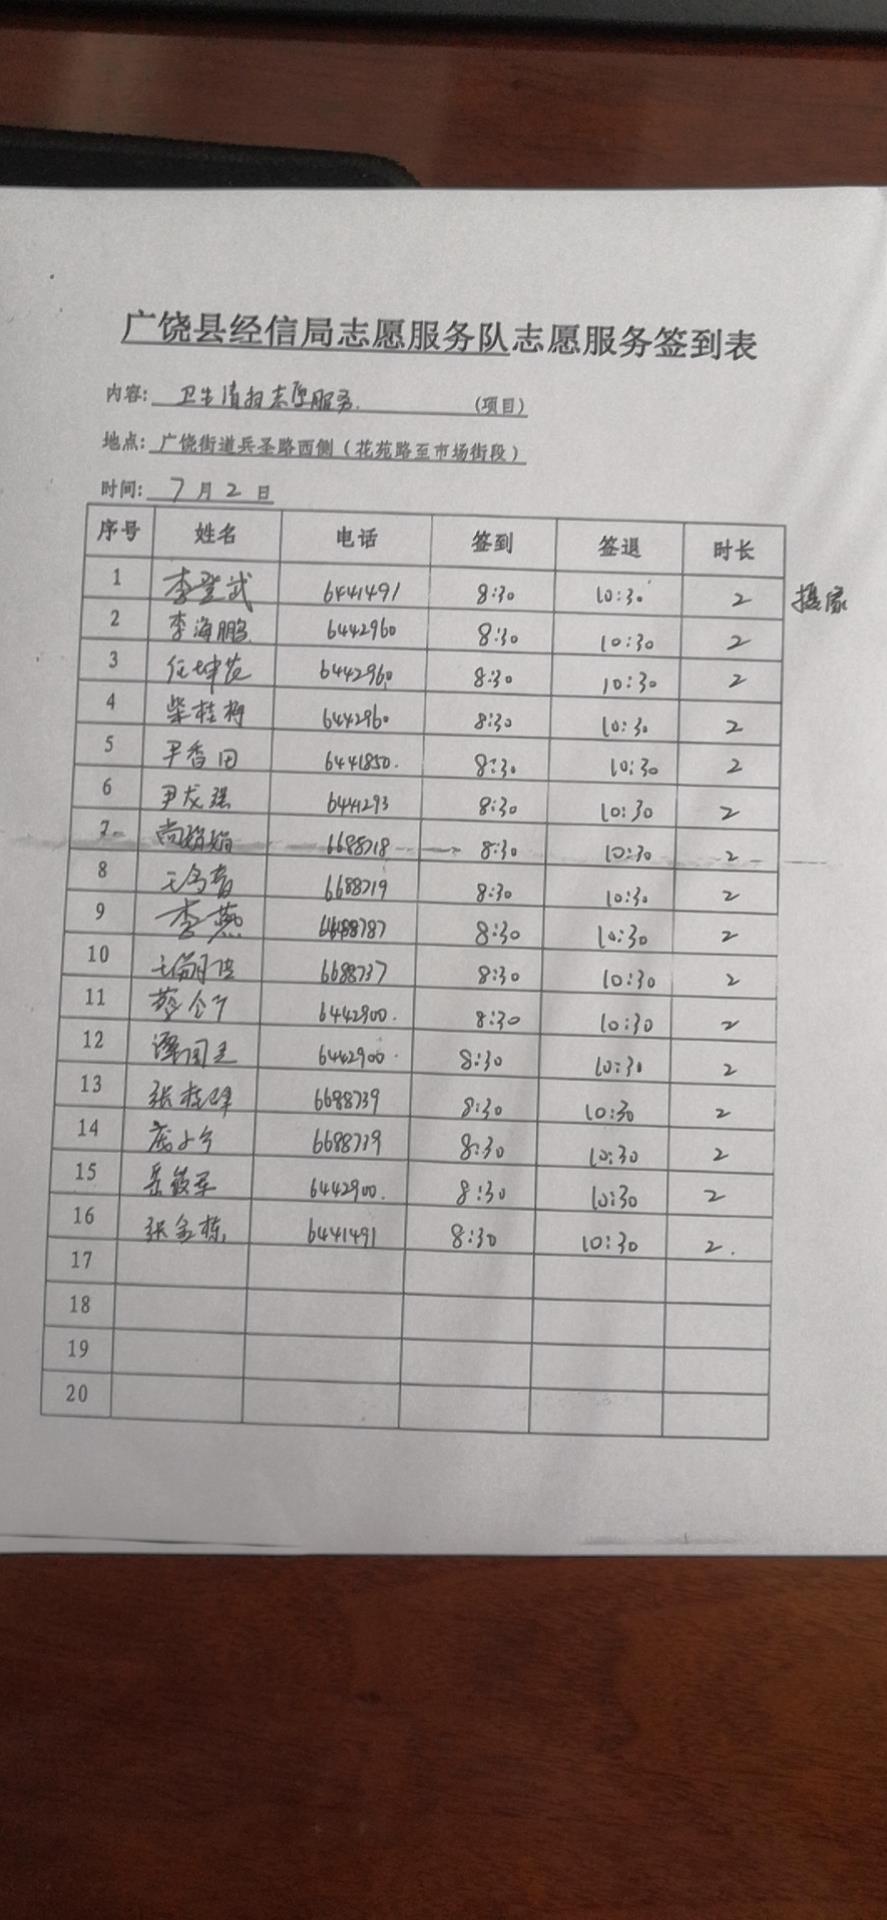 广饶县经信局志愿服务队志愿服务签到表
内容: 卫生清扫志愿服务. (项目)
地点: 广饶街道兵圣路西侧(花苑路至市场街段)
时间: 7月2日
序号 姓名 电话 签到 签退 时长
1 李登武 6441491 8:30 10:30 2
2 李海鹏 6442960 8:30 10:30 2
3 任坤范 6442960 8:30 10:30 2
4 柴桂梅 6442960 8:30 10:30 2
5 尹香田 6441850. 8:30 10:30 2
6 尹龙强 6441293 8:30 10:30 2
7 尚娟娟 6688718 8:30 10:30 2
8 6688719 8:30 10:30 2
9 李燕 6688787 8:30 10:30 2
10 6688737 8:30 10:30 2
11 6442900. 8:30 10:30 2
12 6442900. 8:30 10:30 2
13 张桂峰 6688739 8:30 10:30 2
14 6688739 8:30 10:30 2
15 6442900. 8:30 10:30 2
16 张金栋 6441491 8:30 10:30 2.
17
18
19
20